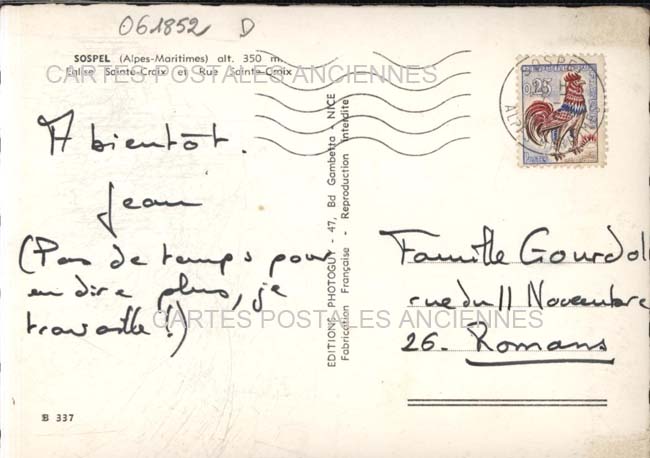 061852 D
SOSPEL (Alpes-Maritimes) alt. 350 m.
Eglise Sainte-Croix et Rue Sainte-Croix
CARTES POSTALES ANCIENNES
A bientôt.
Jean
(Pas de temps pour
en dire plus, je
travaille !)
CARTES POSTALES ANCIENNES
B 337
EDITIONS PHOTOGUY - 47, Bd Gambetta - NICE
Fabrication Française - Reproduction interdite
SOSPEL
0,25
Famille Gourdol
rue du 11 Novembre
26. Romans